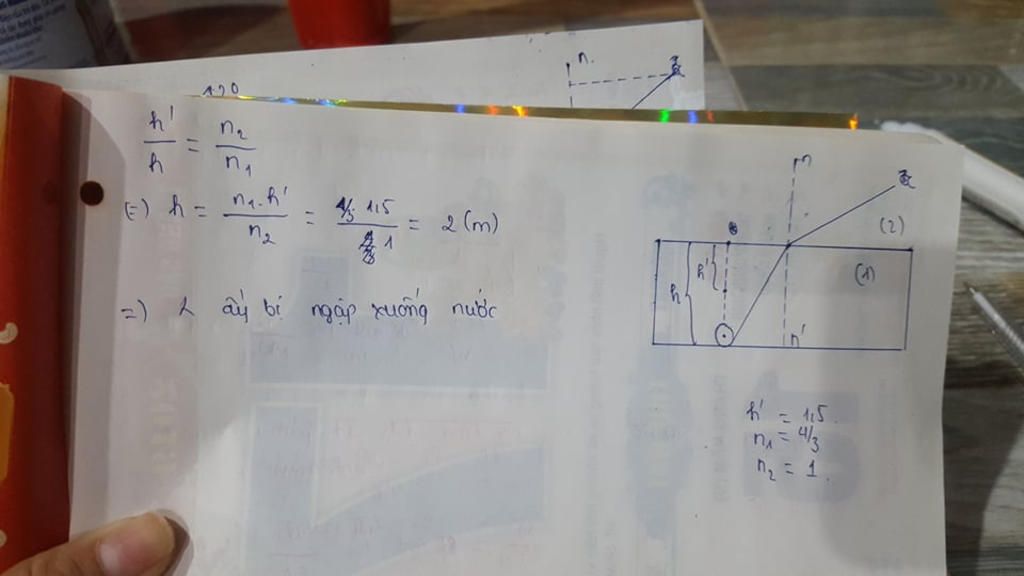 n
h'/h = n2/n1
(=) h = n1.h'/n2 = 4/3 1,5/1 = 2 (m)
=) ấy bị ngập xuống nước
n
(2)
h h' (1)
n'
h' = 1,5
n1 = 4/3
n2 = 1.